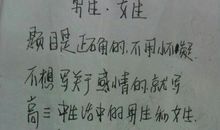 男生·女生
题目是正确的,不用怀疑.
不想写关于感情的,就写
高三中生活中的男生和女生.